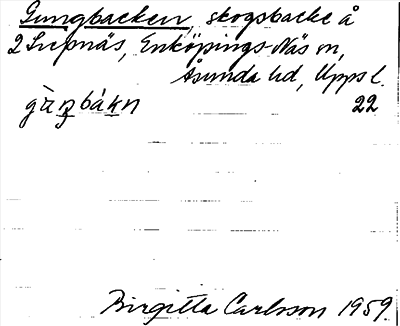 Gungbacken, skogsbacke å
2 Svepnäs, Enköpings-Näs sn,
Åsunda hd, Upps l.
gàŋbákn 22
Birgitta Carlsson 1959.